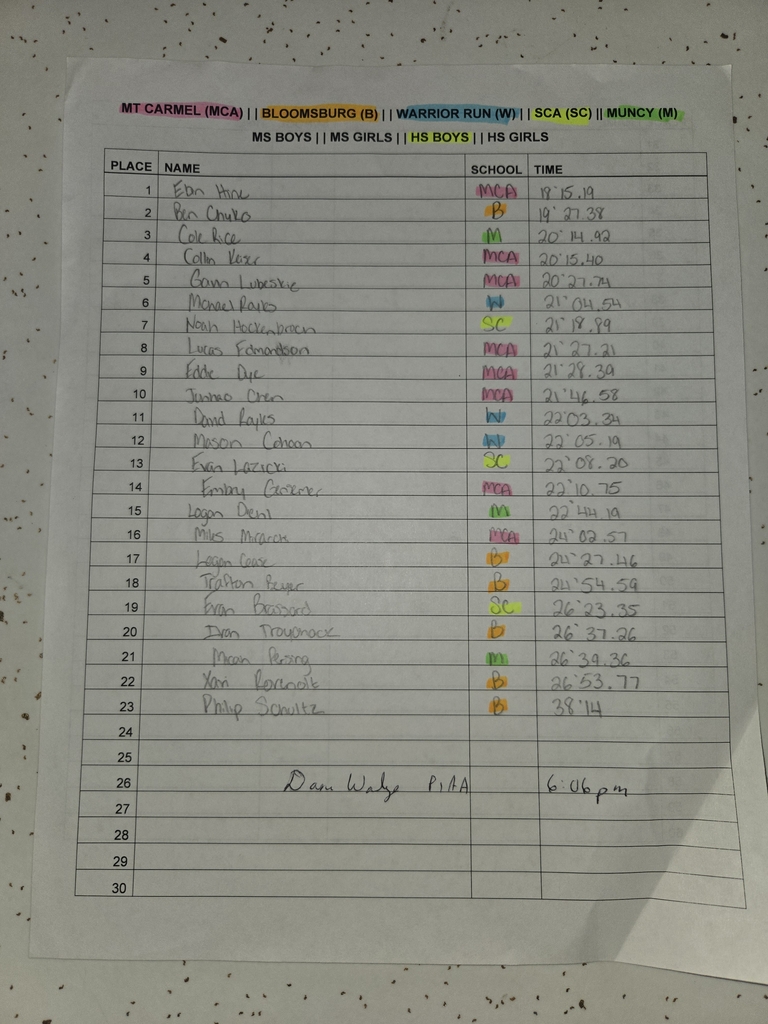 MT CARMEL (MCA) || BLOOMSBURG (B) || WARRIOR RUN (W) || SCA (SC) || MUNCY (M)
MS BOYS || MS GIRLS || HS BOYS || HS GIRLS
PLACE NAME SCHOOL TIME
1 MCA 18'15.19
2 Ben B 19'27.38
3 Cole Rice M 20'14.92
4 MCA 20'15.40
5 MCA 20'27.74
6 Michael W 21'04.54
7 Noah SC 21'18.89
8 Lucas Edmondson MCA 21'27.21
9 Eddie Dye MCA 21'28.39
10 Junhao Chen MCA 21'46.58
11 David W 22'03.34
12 Mason Cohoon W 22'05.19
13 Evan SC 22'08.20
14 MCA 22'10.75
15 Logan M 22'44.19
16 Miles MCA 24'02.57
17 Logan B 24'27.46
18 B 24'54.59
19 Evan Brassard SC 26'23.35
20 B 26'37.26
21 Micah Persing M 26'39.36
22 B 26'53.77
23 Philip Schultz B 38'14
24
25
26 PIAA 6:06pm
27
28
29
30